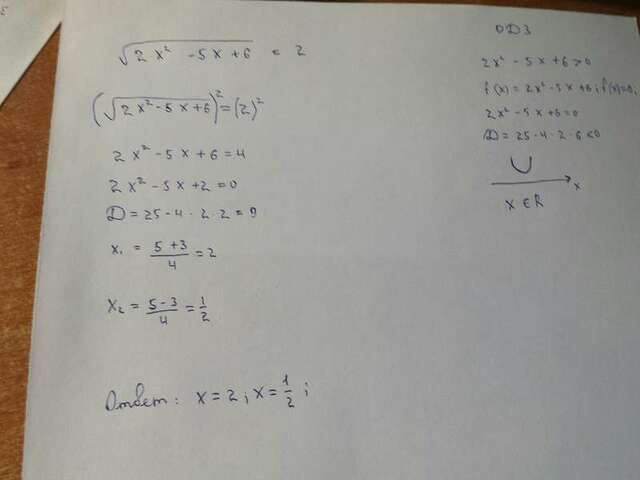 √(2x² -5x+6) = 2
(√(2x²-5x+6))² = (2)²
2x² - 5x + 6 = 4
2x² - 5x + 2 = 0
D = 25 - 4 · 2 · 2 = 9
x₁ = (5+3)/4 = 2
x₂ = (5-3)/4 = 1/2
Ответ: x = 2; x = 1/2;
ОДЗ
2x² - 5x + 6 > 0
f(x) = 2x² - 5x + 6; f(x)=0;
2x² - 5x + 6 = 0
D = 25 - 4 · 2 · 6 < 0
x
x ∈ R